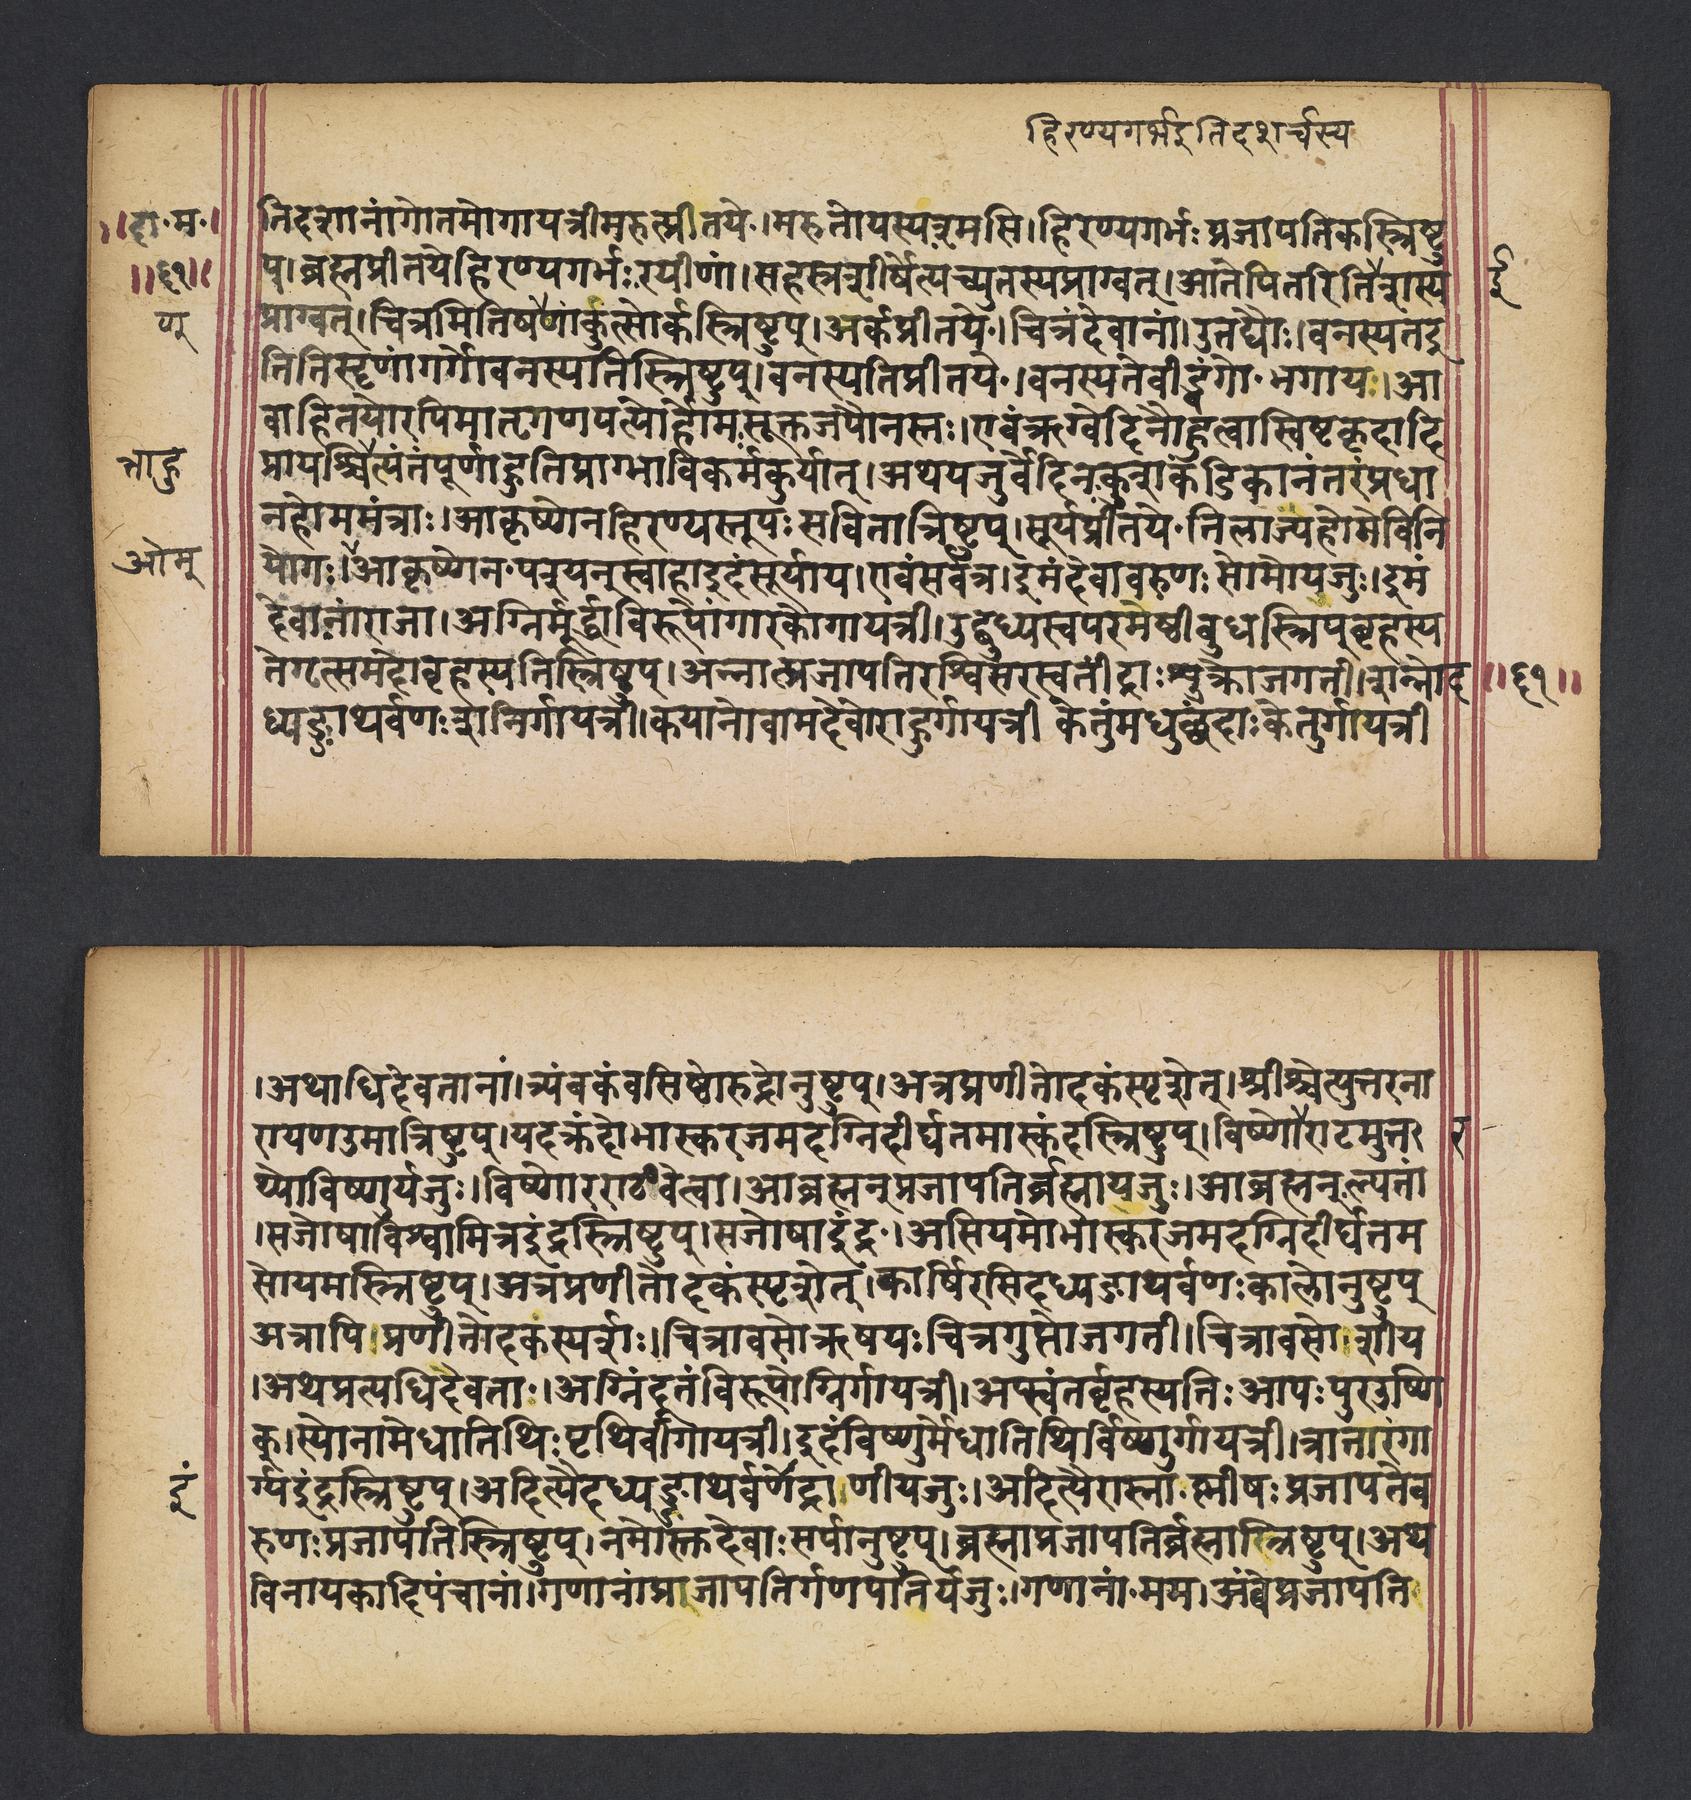 हिरण्यगर्भइतिदशर्चस्य
॥दा॰म॰।
॥६१॥
तिदशानांगोतमोगायत्रीमरुत्प्रीतये॰।मरुतोयस्य॰मसि।हिरण्यगर्भःप्रजापतिकस्त्रिष्टु
प्।ब्रह्मप्रीतयेहिरण्यगर्भः॰रयीणां।सहस्रशीर्षेत्यच्युतस्यप्राग्वत्।आतेपितरितिशास्य
ई
प्राग्वत्।चित्रमितिषणांकुत्सोर्कस्त्रिष्टुप्।अर्कप्रीतये॰।चित्रंदेवानां।उतद्यौः।वनस्पतइ
ण्
तितिसृणांगर्गोवनस्पतिस्त्रिष्टुप्।वनस्पतिप्रीतये॰।वनस्पतेवीड्वंगो॰भगाय॰।आ
वाहितयोरपिमातृगणपत्योर्होमःसूक्तजपौनस्तः।एवंऋग्वेदिनोहुत्वास्विष्टकृदादि
प्रायश्चित्यंतंपूर्णाहुतिप्राग्भाविकर्मकुर्यात्।अथयजुर्वेदिनःकुशकंडिकानंतरंप्रधा
नहोममंत्राः।आकृष्णेनहिरण्यस्तूपःसवितात्रिष्टुप्।सूर्यप्रीतये॰तिलाज्यहोमेविनि
ओम्
योगः।आकृष्णेन॰पश्यन्स्वाहाइदंसूर्याय।एवंसर्वत्र।इमंदेवावरुणःसोमोयजुः।इमं
देवा॰नांराजा।अग्निर्मूर्द्धाविरूपोंगारकोगायत्री।उद्बुध्यस्वपरमेष्ठीबुधस्त्रिपुबृहस्प
तेगृत्समदोबृहस्पतिस्त्रिष्टुप्।अन्नात्प्रजापतिरश्विसरस्वतींद्राःशुक्रोजगती।शन्नोद
॥६१॥
ध्यङ्ङाथर्वणःशनिर्गायत्री।कयानोवामदेवोराहुर्गायत्री केतुंमधुच्छंदाःकेतुर्गायत्री
।अथाधिदेवतानां।त्र्यंबकंवसिष्ठोरुद्रोनुष्टुप्।अत्रप्रणीतोदकंस्पृशेत्।श्रीश्चेत्युत्तरना
रायणउमात्रिष्टुप्।यदक्रंदोभास्करजमदग्निदीर्घतमास्कंदस्त्रिष्टुप्।विष्णोराटमुत
र
थ्योविष्णुर्यजुः।विष्णोरराटंवेत्वा।आब्रह्मन्प्रजापतिर्ब्रह्मायजुः।आब्रह्मन्॰ल्पतां
।सजोषाविश्वामित्रइंद्रस्त्रिष्टुप्।सजोषाइंद्र॰।असियमोभास्करजमदग्निदीर्घतम
सोयमस्त्रिष्टुप्।अत्रप्रणीतोदकंस्पृशेत्।कार्षिरसिदध्यङाथर्वणःकालोनुष्टुप्
अत्रापि।प्रणीतोदकस्पर्शः।चित्रावसोऋषयःचित्रगुप्तोजगती।चित्रावसो।शीय
।अथप्रत्यधिदेवताः।अग्निंदूतंविरूपोग्निर्गायत्री।अप्स्वंतर्बृहस्पतिःआपःपुरउष्णि
क्।स्योनामेधातिथिःपृथिवीगायत्री।इदंविष्णुर्मेधातिथिर्विष्णुर्गायत्री।त्रातारंगा
इं
र्ग्यइंद्रस्त्रिष्टुप्।अदित्यैदध्यङ्ङाथर्वर्णेंद्रा।णीयजुः।अदित्यैरास्ना॰ष्णीषःप्रजापतेव
रुणःप्रजापतिस्त्रिष्टुप्।नमोस्तदेवाःसर्पानुष्टुप्।ब्रह्माप्रजापतिर्ब्रह्मास्त्रिष्टुप्।अथ
विनायकादिपंचानां।गणानांप्राजापतिर्गणपतिर्यजुः।गणानां॰मम।अंबेप्रजापति